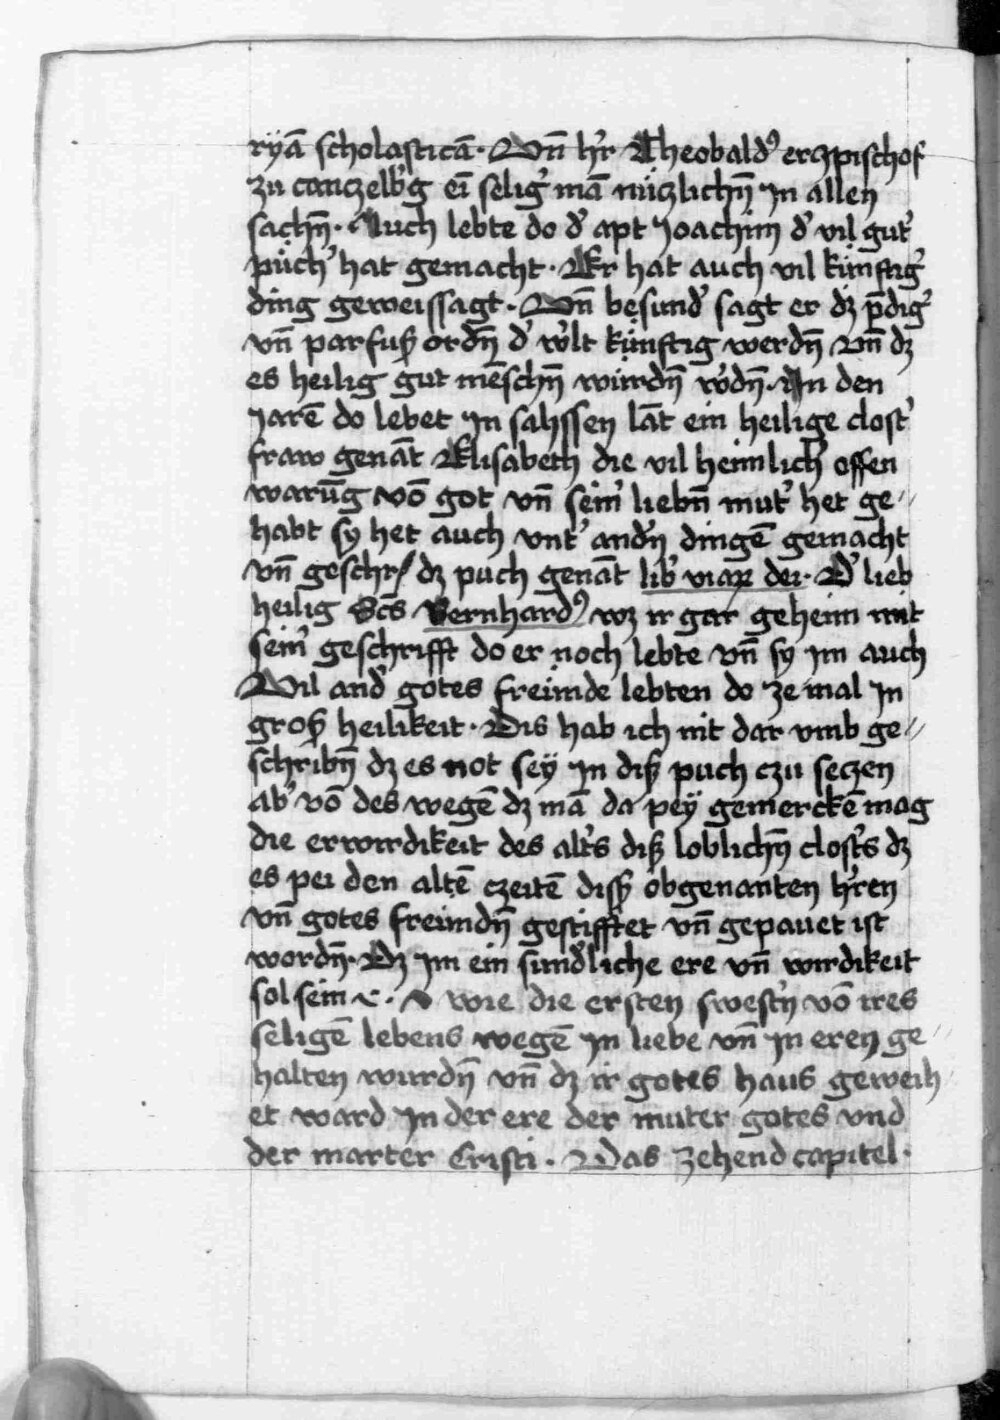 ryā scholasticā · Vn̄ hʼr Theobaldꝰ erczpischof
zu conczelbʼg eī seligʼ mā nüczlichn̄ Jn allen
sachn̄ · Auch lebte do dʼ apt Joachim dʼ vil gutʼ
püchʼ hat gemacht · Er hat auch vil künftigʼ
ding geweissagt · Vn̄ besundʼ sagt er dz p̄digʼ
vn̄ parfuß ordn̄ dʼ wʼlt künftig werdn̄ vn̄ dz
es heilig gut mēschn̄ würdn̄ wʼdn̄ · Jn den
Jarē do lebet Jn sahssen lāt ein heilige clostʼ
fraw genāt Elisabeth die vil heimlichʼ offen
warūg vō got vn̄ seinʼ liebn̄ mutʼ het ge〃
habt sy het auch vntʼ andʼn dingē gemacht
vn̄ geschrʼ dz puch genāt libʼ viaꝝ dei · Dʼ lieb
heilig Scs̄ Bernhardꝰ wz ir gar geheim mit
seinʼ geschrifft do er noch lebte vn̄ sy im auch
Vil andʼ gotes freunde lebten do ze mal Jn
groß heilikeit · Dis hab ich nit dar vmb ge〃
schribn̄ dz es not sey Jn diß puch czu seczen
abʼ vō des wegē dz mā da pey gemerckē mag
die erwirdikeit des altʼs diß loblichn̄ clostʼs dz
es pei den altē czeitē dissʼ obgenanten hʼren
vn̄ gotes freundn̄ gestifftet vn̄ gepauet ist
wordn̄ · Dz im ein sundʼliche ere vn̄ wirdikeit
sol sein ⁊c · wie die ersten swestʼn vō ires
seligē lebens wegē Jn liebe vn̄ Jn eren ge〃
halten wurdn̄ vn̄ dz ir gotes haus geweih〃
et ward Jn der ere der muter gotes vnd
der marter Cristi · Das zehend capitel ·